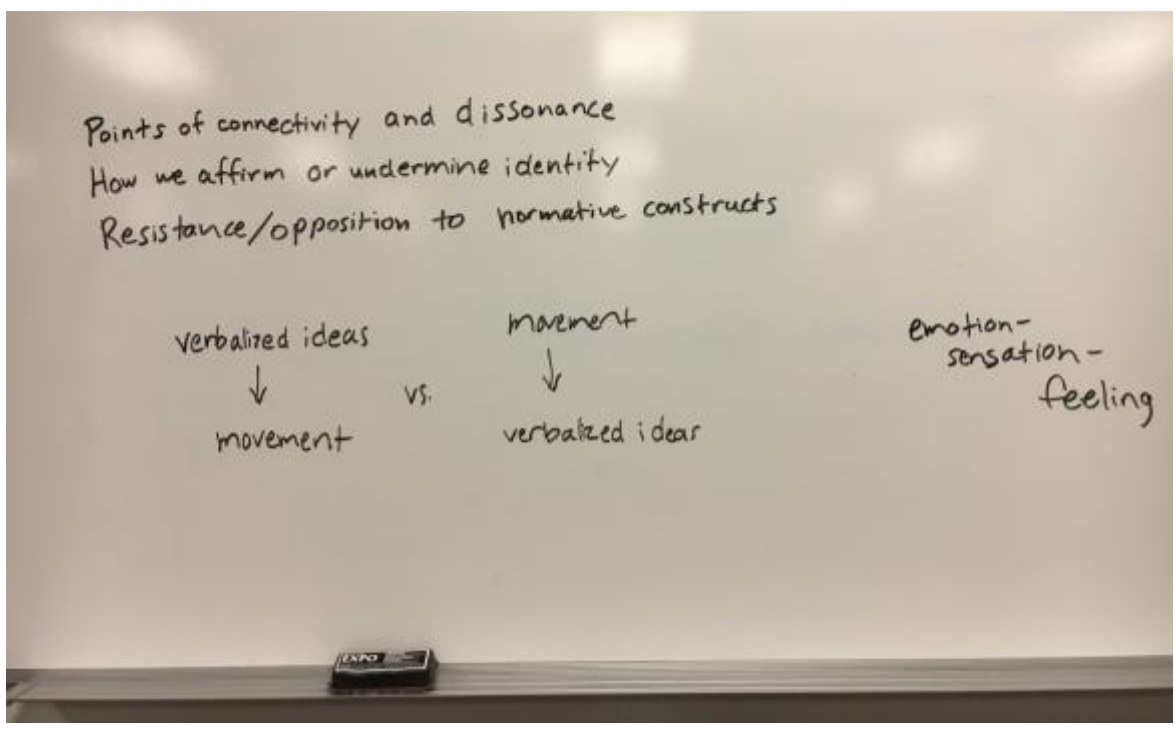 Points of connectivity and dissonance
How we affirm or undermine identity
Resistance/opposition to normative constructs
verbalized ideas
↓
movement
vs.
movement
↓
verbalized ideas
emotion-
sensation-
feeling
EXPO